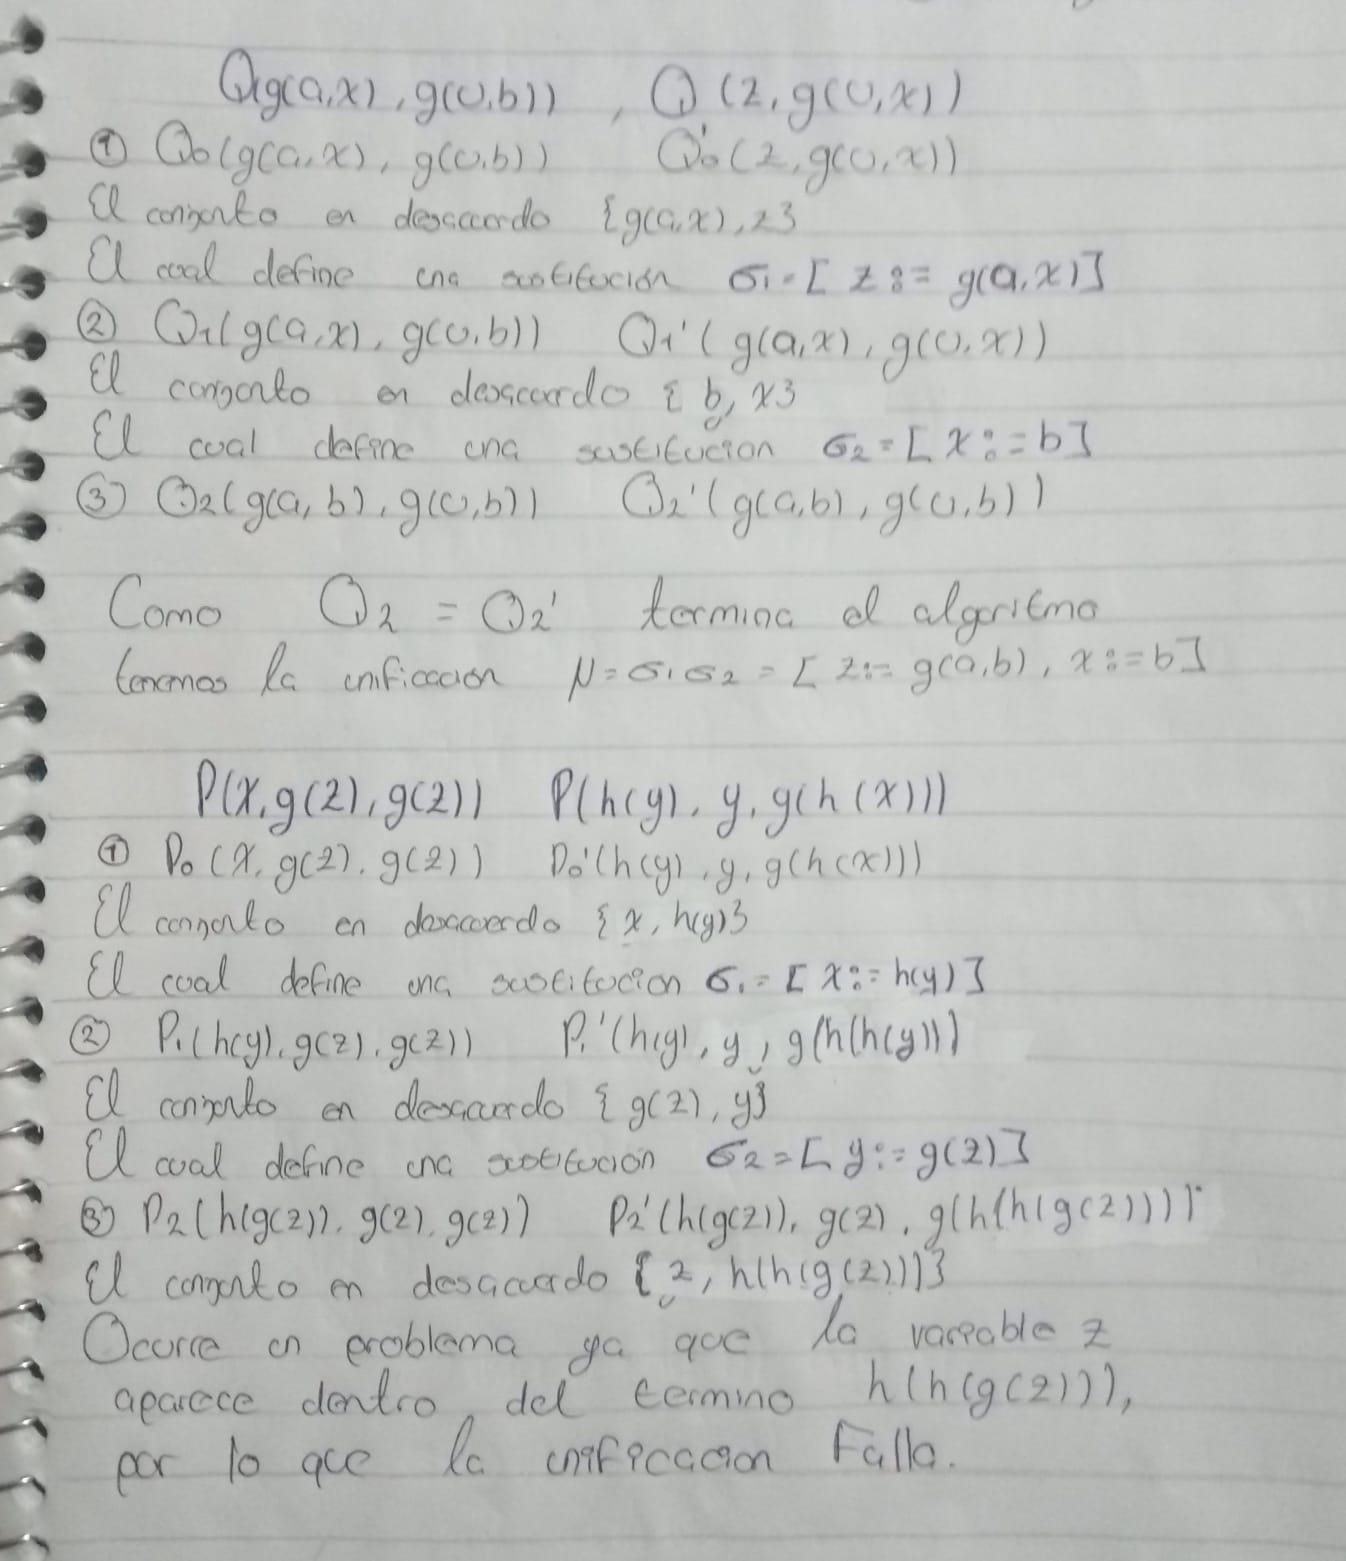 Q(g(a,x), g(u,b)) , Q(z, g(u,x))
① Q₀(g(a,x), g(u,b)) Q₀'(z, g(u,x))
El conjunto en desacuerdo {g(a,x), z}
El cual define una sustitución σ₁=[z:=g(a,x)]
② Q₁(g(a,x), g(u,b)) Q₁'(g(a,x), g(u,x))
El conjunto en desacuerdo {b, x}
El cual define una sustitucion σ₂=[x:=b]
③ Q₂(g(a,b), g(u,b)) Q₂'(g(a,b), g(u,b))
Como Q₂ = Q₂' termina el algoritmo
tenemos la unificacion μ=σ₁σ₂=[z:=g(a,b), x:=b]
P(x, g(z), g(z)) P(h(y), y, g(h(x)))
① P₀(x, g(z), g(z)) P₀'(h(y), y, g(h(x)))
El conjunto en desacuerdo {x, h(y)}
El cual define una sustitucion σ₁=[x:=h(y)]
② P₁(h(y), g(z), g(z)) P₁'(h(y), y, g(h(h(y)))
El conjunto en desacuerdo {g(z), y}
El cual define una sustitución σ₂=[y:=g(z)]
③ P₂(h(g(z)), g(z), g(z)) P₂'(h(g(z)), g(z), g(h(h(g(z))))
El conjunto en desacuerdo {z, h(h(g(z)))}
Ocurre un problema ya que la variable z
aparece dentro del termino h(h(g(z))),
por lo que la unificacion Falla.